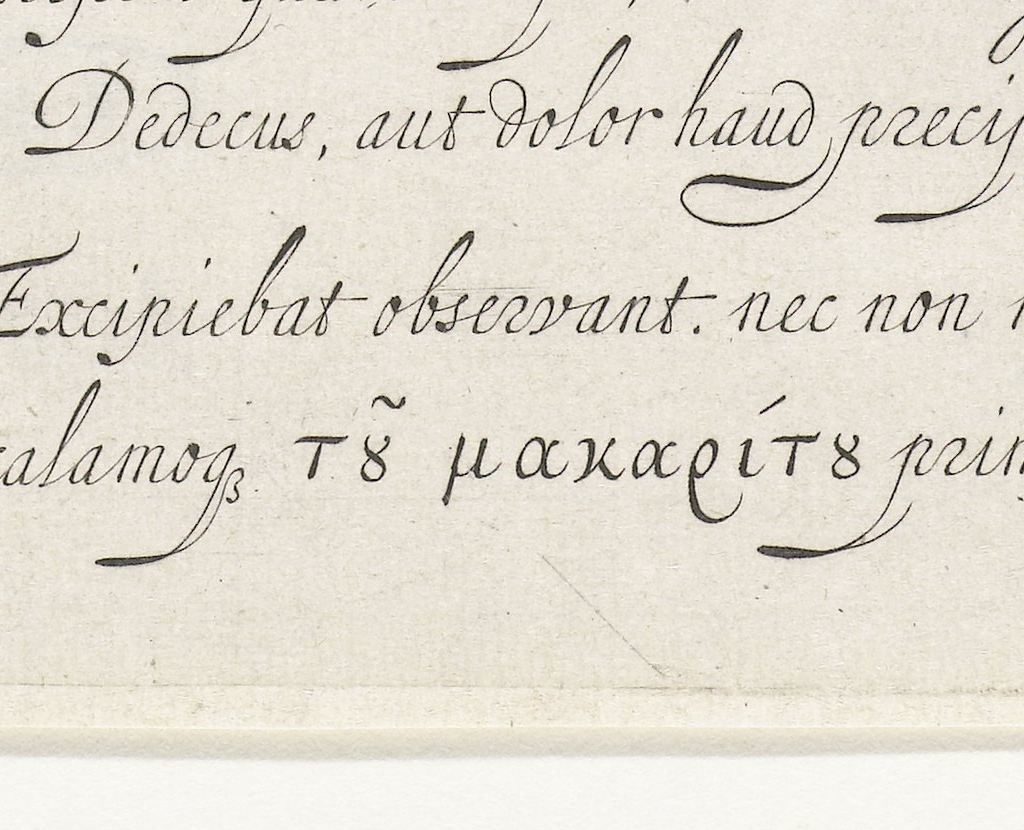 Dedecus, aut dolor haud precij
Excipiebat observant. nec non
calamoqꝫ τȣ͂ μακαρίτȣ